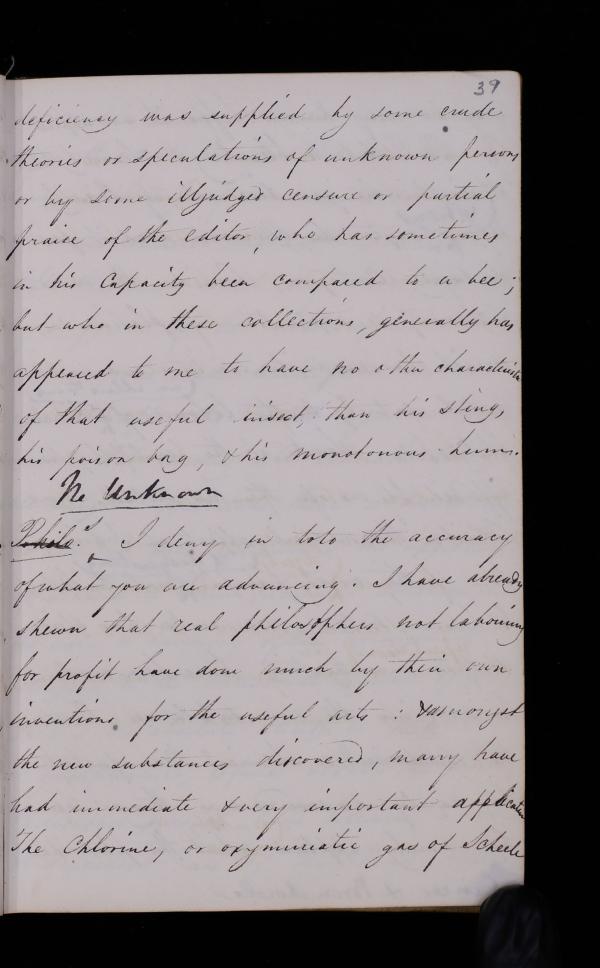 39
deficiency was supplied by some crude
theories or speculations of unknown persons
or by some illjudged censure or partial
praise of the editor, who has sometimes
in his capacity been compared to a bee;
but who in these collections, generally has
appeared to me to have no other characteristic
of that useful insect, than his sting,
his poison bag, & his monotonous hum.
The Unknown
Philo. I deny in toto the accuracy
of what you are advancing. I have already
shewn that real philosophers not labouring
for profit have done much by their own
inventions for the useful arts: & amongst
the new substances discovered, many have
had immediate & very important application
The Chlorine, or oxymuriatic gas of Scheele